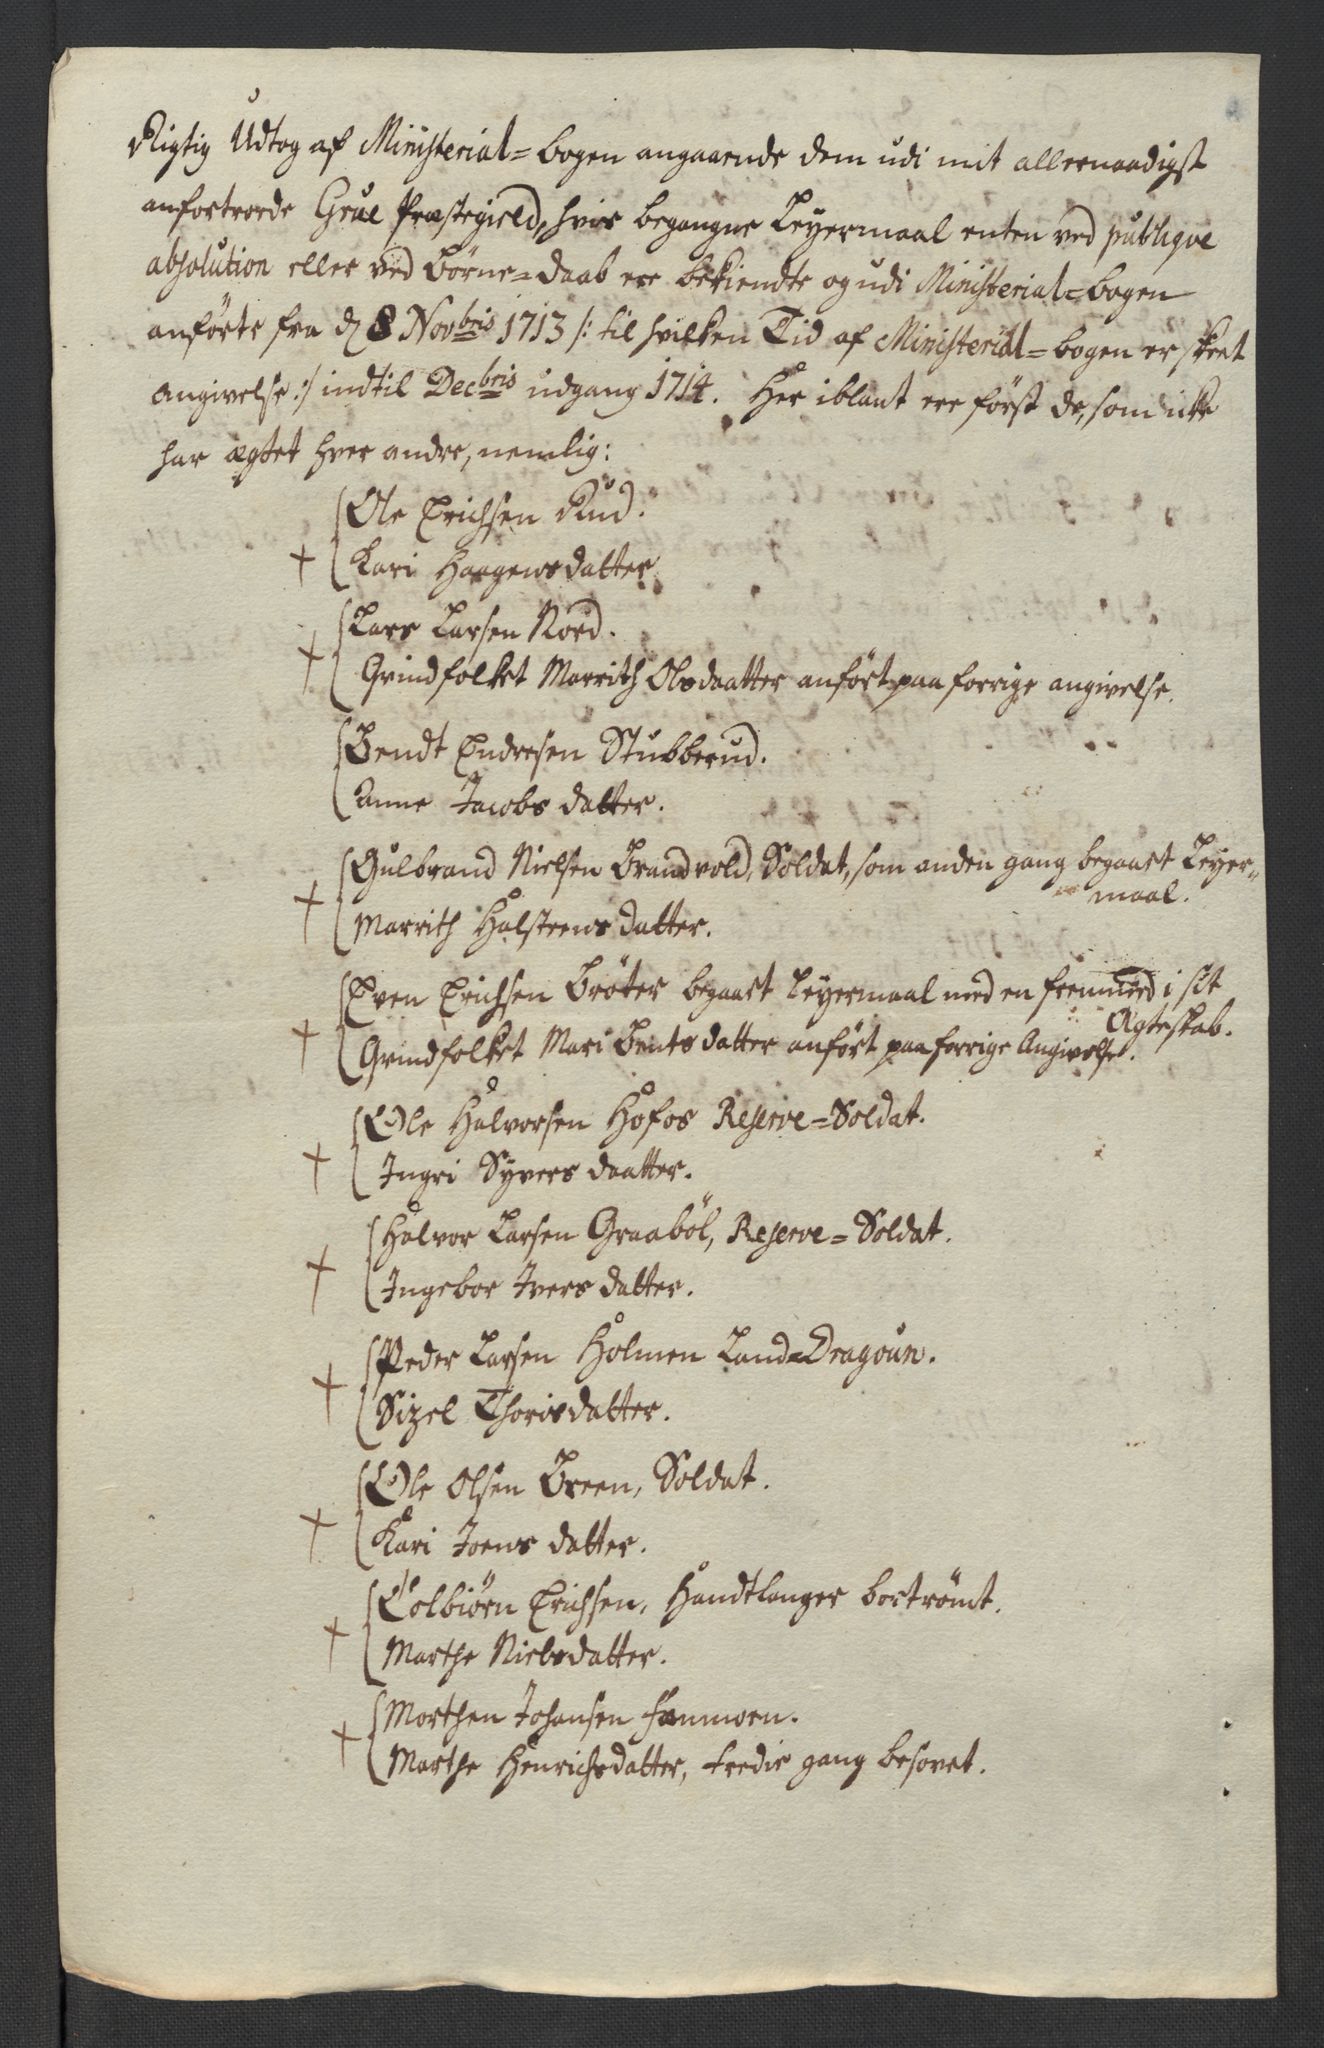 Rigtig Udtog af Ministerial=bogen angaaende dem udi mit allernaadigst
anfortroede Grue Præstegield, hvis begangne Leyermaal enten ved publiqve
absolution eller ved Börne=daab ere bekiendte og udi Ministerial=bogen
anförte fra d 8 Novbris 1713 /: til hvilken Tid af Ministerial=bogen er skeet
angivelse :/ indtil Decbris udgang 1714. Her iblant ere först de, som icke
har ægtet hver andre, nemlig:
Ole Erichsen Rud.
+ Kari Haagensdatter
Lars Larsen Nord.
+ Qvindfolket Marrith Olsdaatter anfört paa forrige angivelse.
Bendt Endresen Stubberud.
Anne Jacobsdatter.
Gulbrand Nielsen Brandvold, Soldat, som anden gang begaaet Leyer=
maal.
+ Marrith Halsteensdatter.
Even Erichsen Bröter begaaet Leyermaal med en fremmed i sit
Ægteskab.
+ Qvindfolket Mari Bentsdatter anfört paa forrige Angivelse.
Ole Halvorsen Hofos Reserve=Soldat.
+ Ingri Syversdaatter.
Halvor Larsen Graaböl, Reserve=Soldat.
+ Ingebor Iversdatter.
Peder Larsen Holmen Land=Dragoun.
+ Sizel Thorisdatter.
Ole Olsen Breen, Soldat.
+ Kari Joensdatter.
Colbiörn Erichsen, Handtlanger bortrömt.
+ Marthe Nielsdatter.
Morthen Johansen Kammoen.
+ Marthe Henrichsdatter, tredie gang besovet.